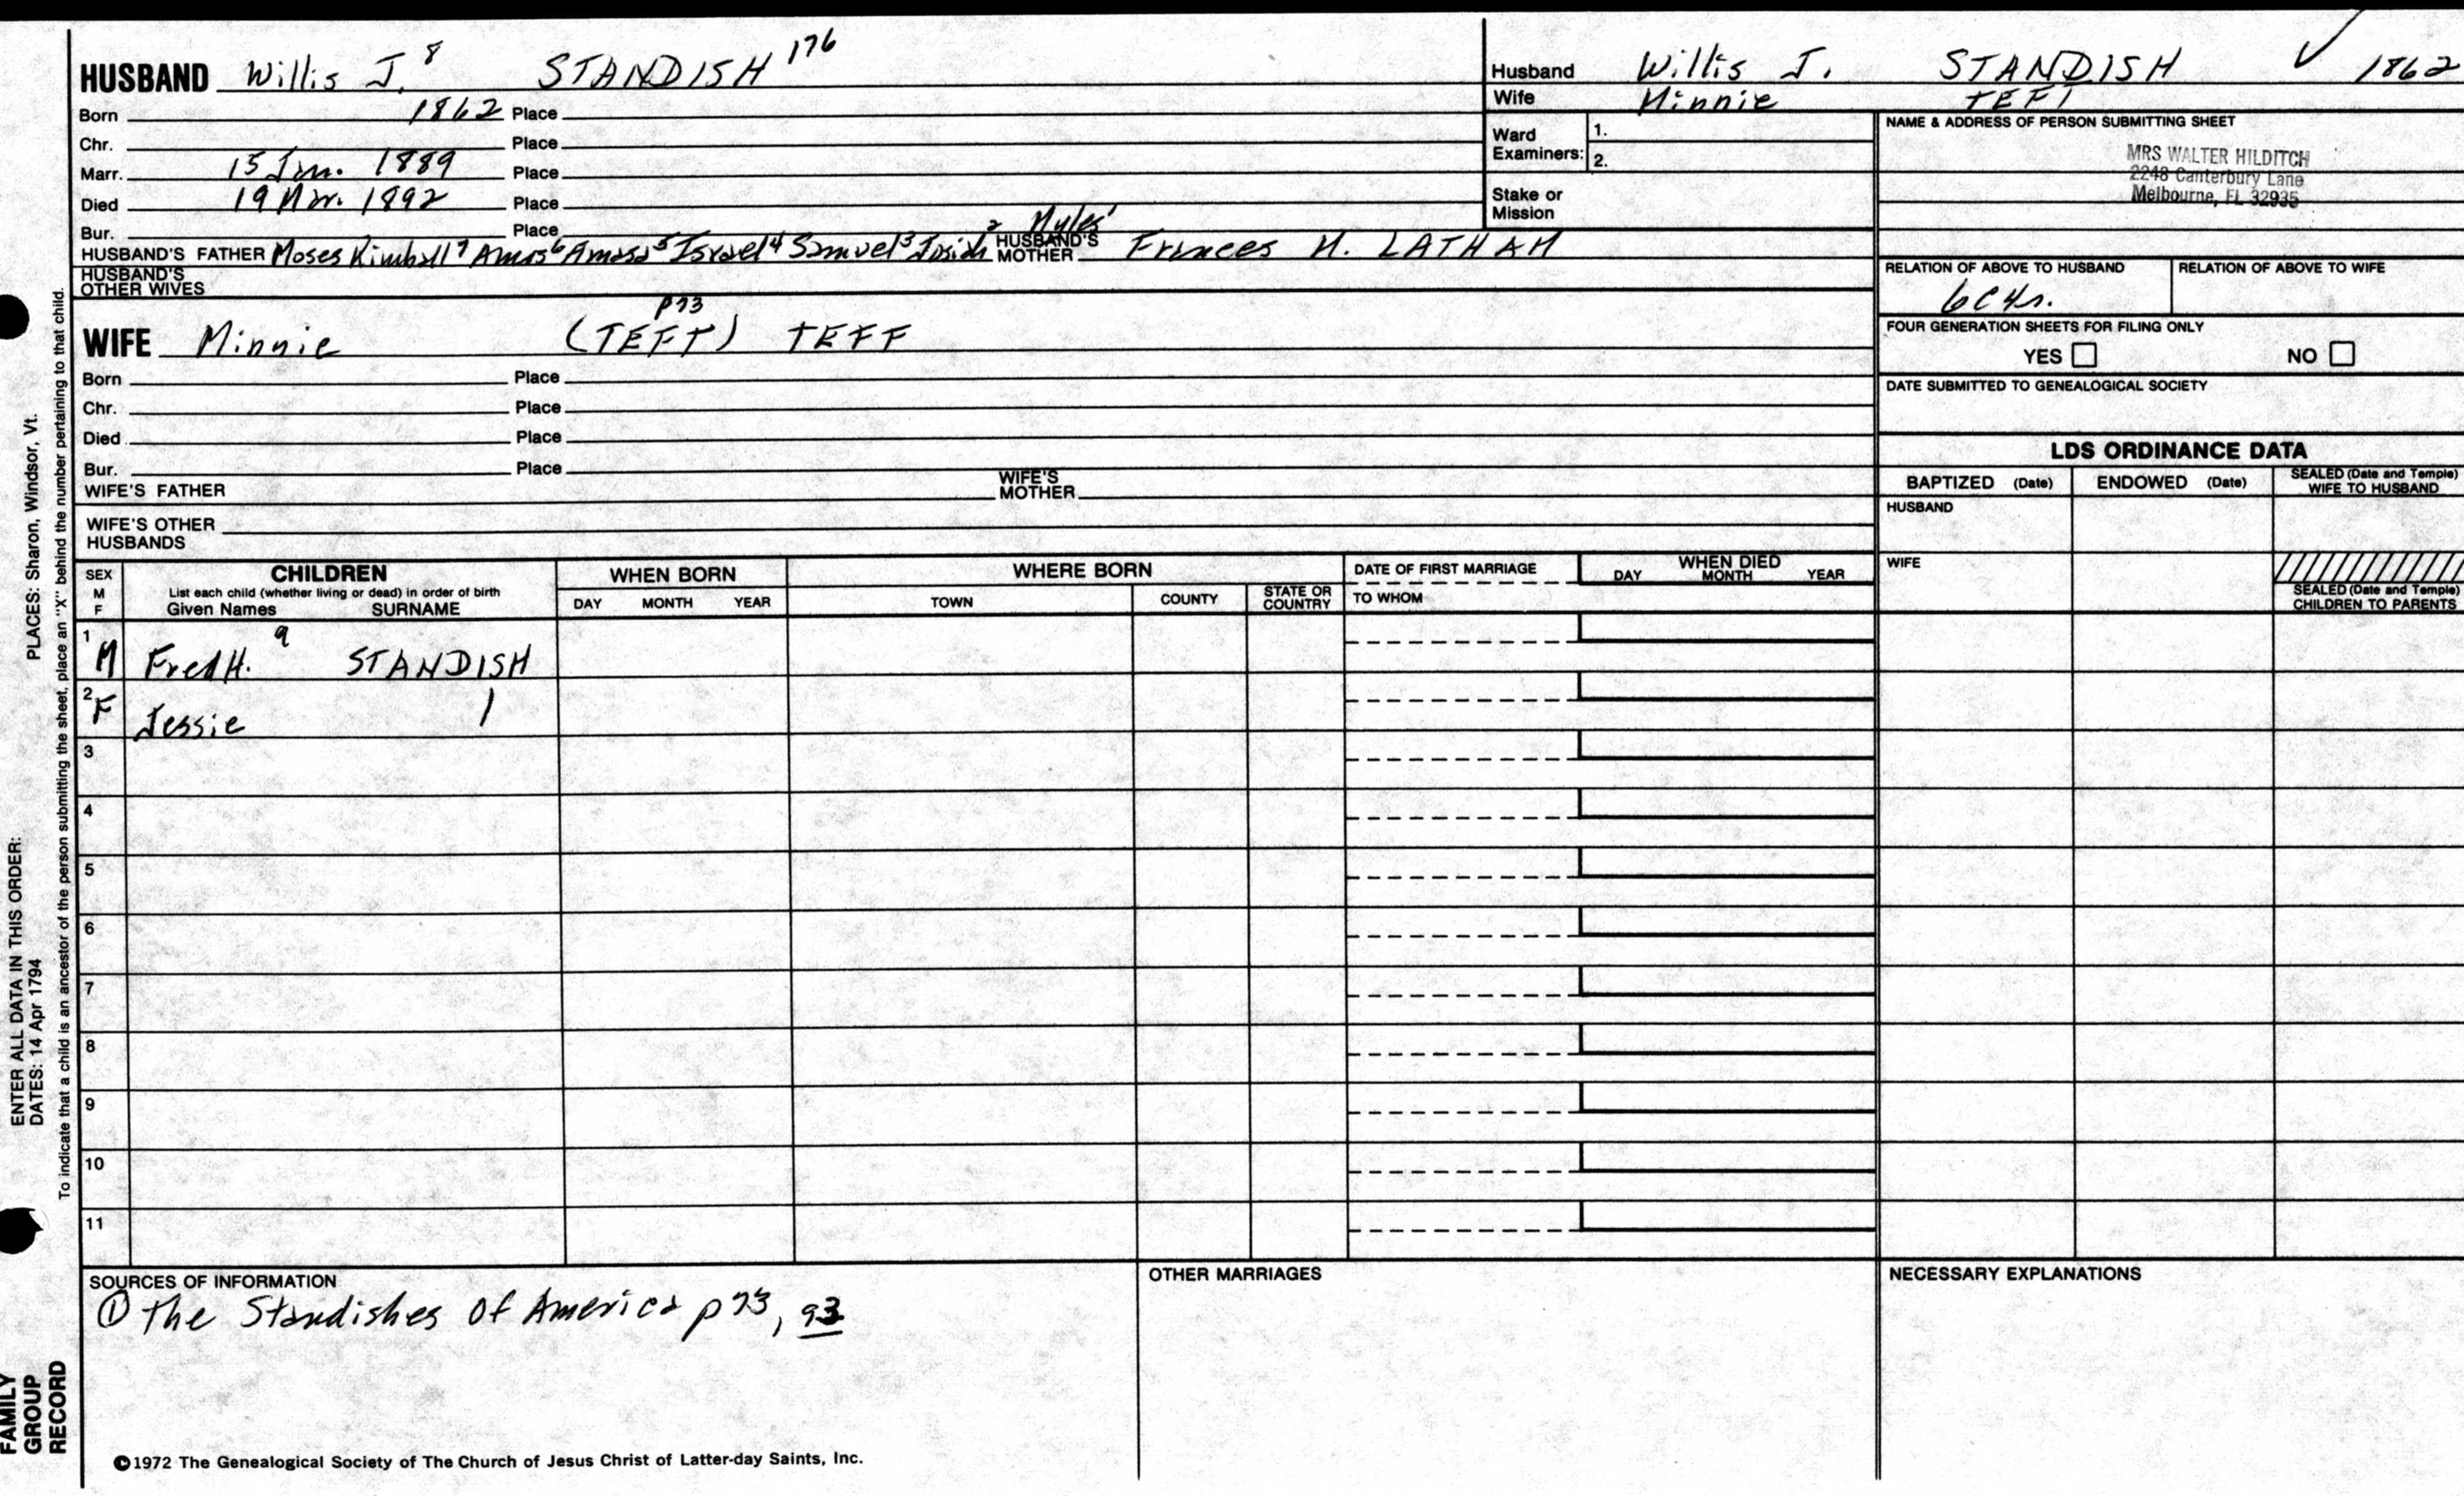 HUSBAND Willis J.⁸ STANDISH 176
Born 1862 Place
Chr. Place
Marr. 15 Jan. 1889 Place
Died 19 Nov. 1892 Place
Bur. Place
HUSBAND'S FATHER Moses Kimball⁷ Amos⁶ Amasa⁵ Israel⁴ Samuel³ Josiah² Myles¹ HUSBAND'S MOTHER Frances M. LATHAM
HUSBAND'S OTHER WIVES
WIFE Minnie (TEFT) p73 TEFF
Born Place
Chr. Place
Died Place
Bur. Place
WIFE'S FATHER WIFE'S MOTHER
WIFE'S OTHER HUSBANDS
Husband Willis J. STANDISH ✓ 1862
Wife Minnie TEFT
Ward Examiners: 1.
2.
Stake or Mission
NAME & ADDRESS OF PERSON SUBMITTING SHEET
MRS WALTER HILDITCH
2248 Canterbury Lane
Melbourne, FL 32935
RELATION OF ABOVE TO HUSBAND RELATION OF ABOVE TO WIFE
6C4r.
FOUR GENERATION SHEETS FOR FILING ONLY
YES NO
DATE SUBMITTED TO GENEALOGICAL SOCIETY
LDS ORDINANCE DATA
BAPTIZED (Date) ENDOWED (Date) SEALED (Date and Temple) WIFE TO HUSBAND
HUSBAND
WIFE
SEALED (Date and Temple) CHILDREN TO PARENTS
SEX M F CHILDREN
List each child (whether living or dead) in order of birth
Given Names SURNAME
WHEN BORN
DAY MONTH YEAR
WHERE BORN
TOWN COUNTY STATE OR COUNTRY
DATE OF FIRST MARRIAGE
TO WHOM
WHEN DIED
DAY MONTH YEAR
1 M Fred H.⁹ STANDISH
2 F Jessie
3
4
5
6
7
8
9
10
11
SOURCES OF INFORMATION
① The Standishes of America p 73, 93
OTHER MARRIAGES
NECESSARY EXPLANATIONS
©1972 The Genealogical Society of The Church of Jesus Christ of Latter-day Saints, Inc.
ENTER ALL DATA IN THIS ORDER:
DATES: 14 Apr 1794 PLACES: Sharon, Windsor, Vt.
To indicate that a child is an ancestor of the person submitting the sheet, place an "X" behind the number pertaining to that child.
FAMILY
GROUP
RECORD